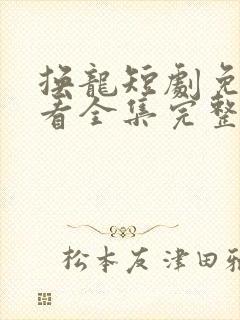 強龍短劇免
看全集完整
松本友津田雅